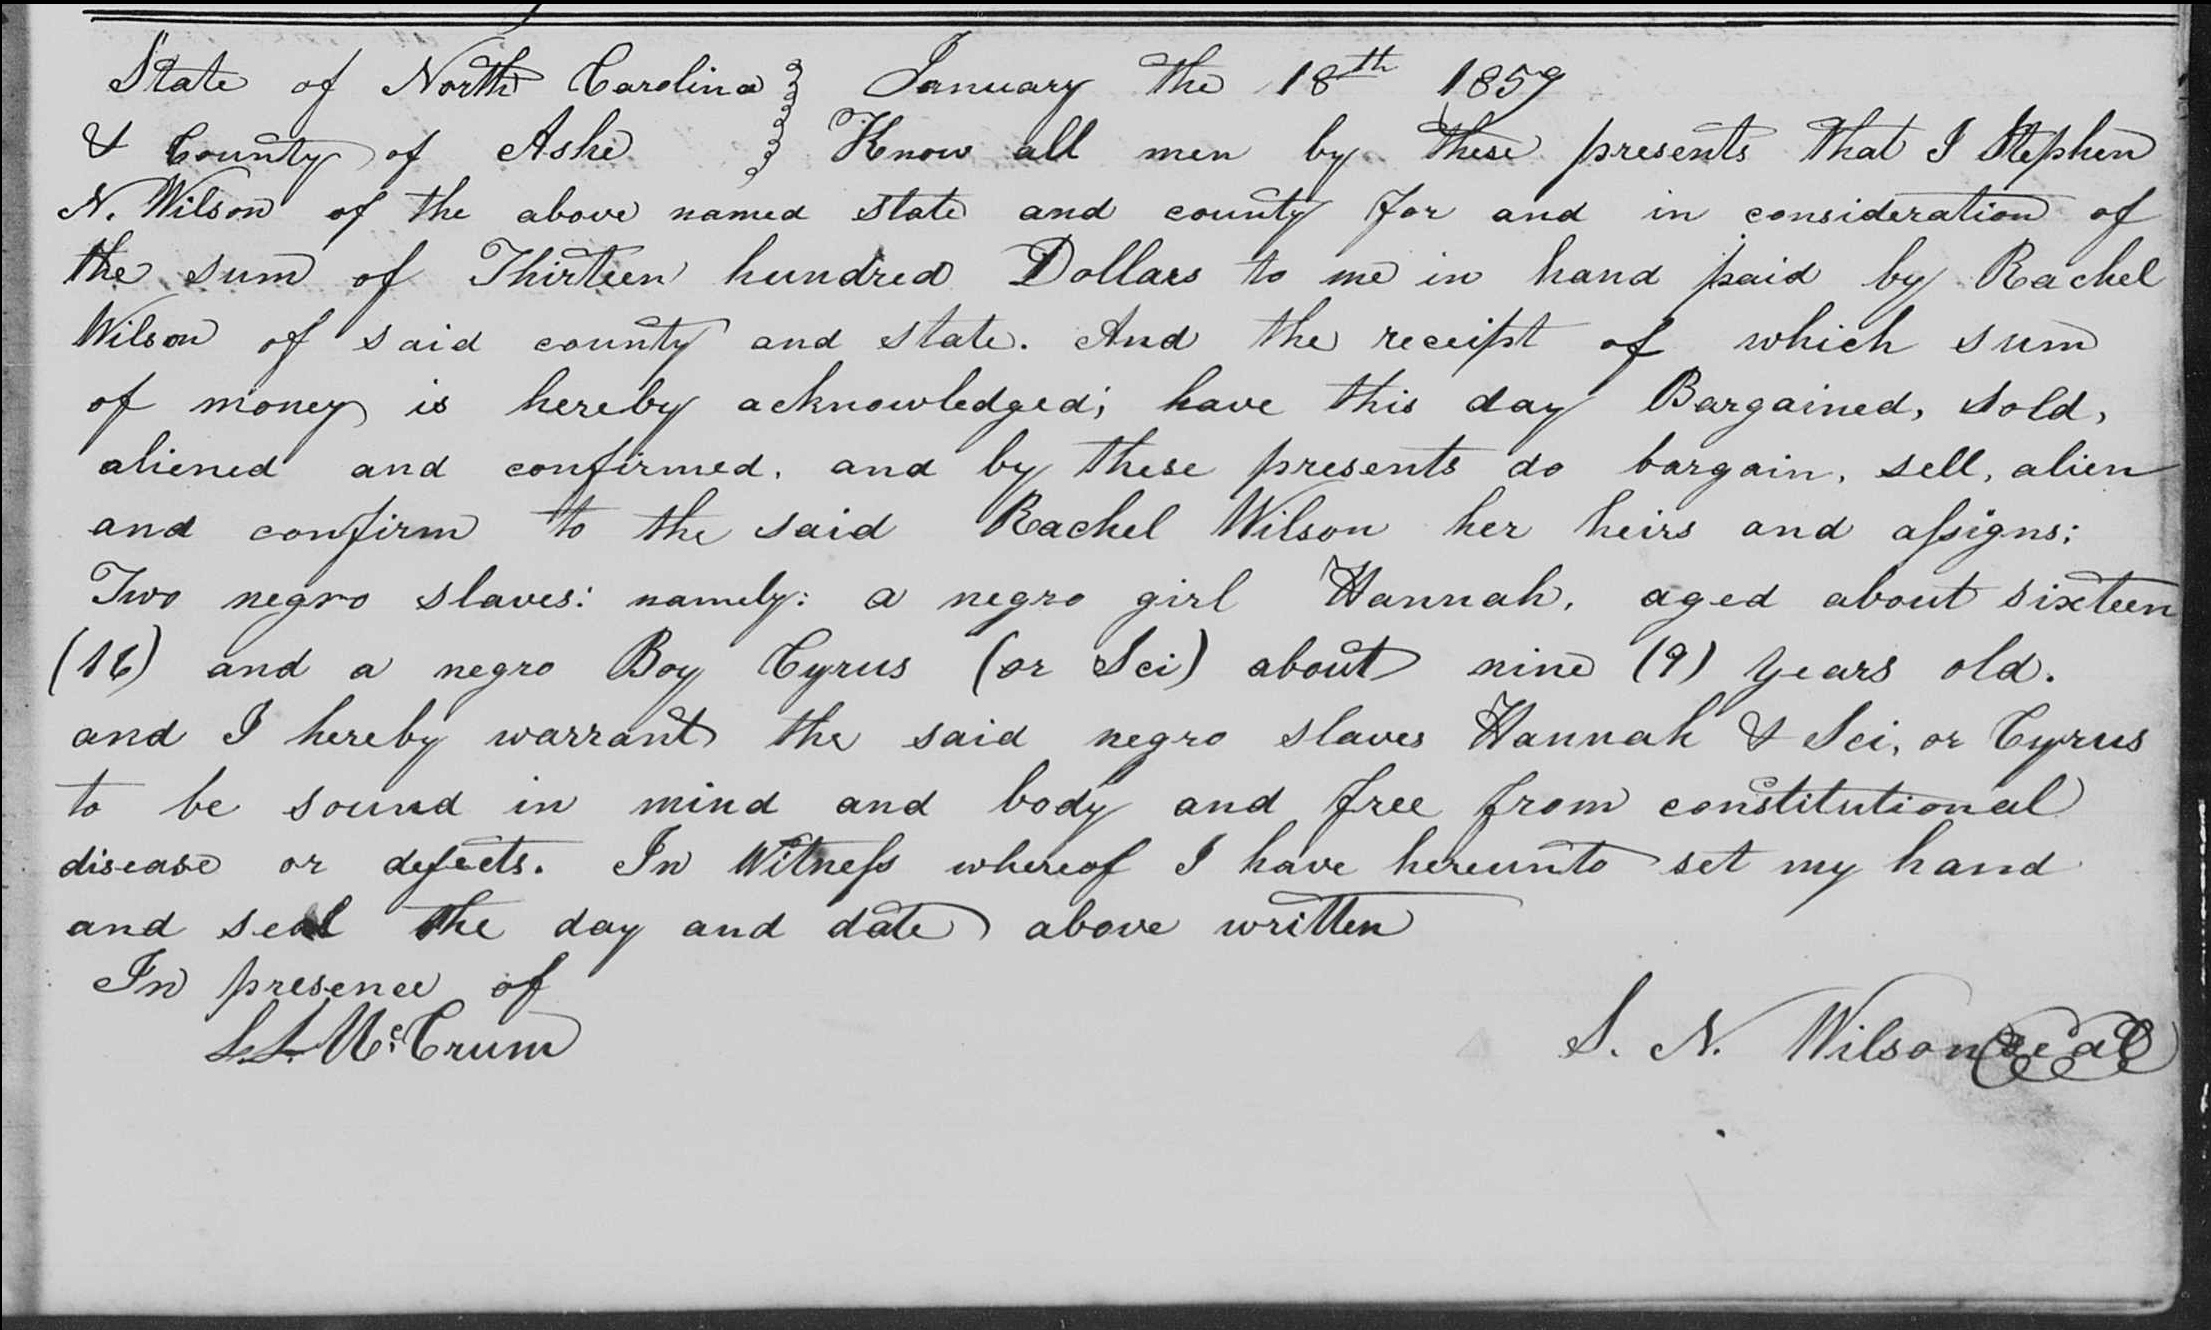 State of North Carolina } January the 18th 1859
& County of Ashe } Know all men by these presents that I Stephen
N. Wilson of the above named state and county for and in consideration of
the sum of Thirteen hundred Dollars to me in hand paid by Rachel
Wilson of said county and state. And the receipt of which sum
of money is hereby acknowledged; have this day Bargained, sold,
aliened and confirmed, and by these presents do bargain, sell, alien
and confirm to the said Rachel Wilson her heirs and assigns;
Two negro slaves: namely: a negro girl Hannah, aged about sixteen
(16) and a negro Boy Cyrus (or Sci) about nine (9) years old.
and I hereby warrant the said negro slaves Hannah & Sci, or Cyrus
to be sound in mind and body and free from constitutional
disease or defects. In Witness whereof I have hereunto set my hand
and seal the day and date above written
In presence of
McCrum
S. N. Wilson seal